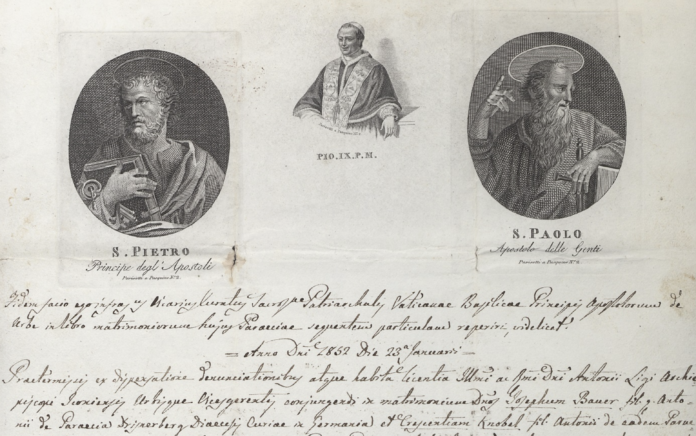 PIO. IX. P. M.
S. PIETRO
Principe degl' Apostoli
S. PAOLO
Apostolo delle Genti
Fidem facio ego Vicarius Curatus Patriarchalis Vaticanae Basilicae Principis Apostolorum de
Urbe in libro matrimoniorum hujus Paraeciae sequentem particulam reperiri, videlicet:
= Anno Dni 1852 Die 23a Januarii =
Praetermissis ex dispensatione denunciationibus atque habita licentia Illmi ac Rmi Dni Antonii Ligi Archie
piscopi Iconiensis Urbisque Vicesgerentis conjungendi in matrimonium Josephum Bauer fil. q. Anto-
nii de Paraecia Diaecesis Curiae in Germania et Crescentiam Knobel fil. Antonii de eadem